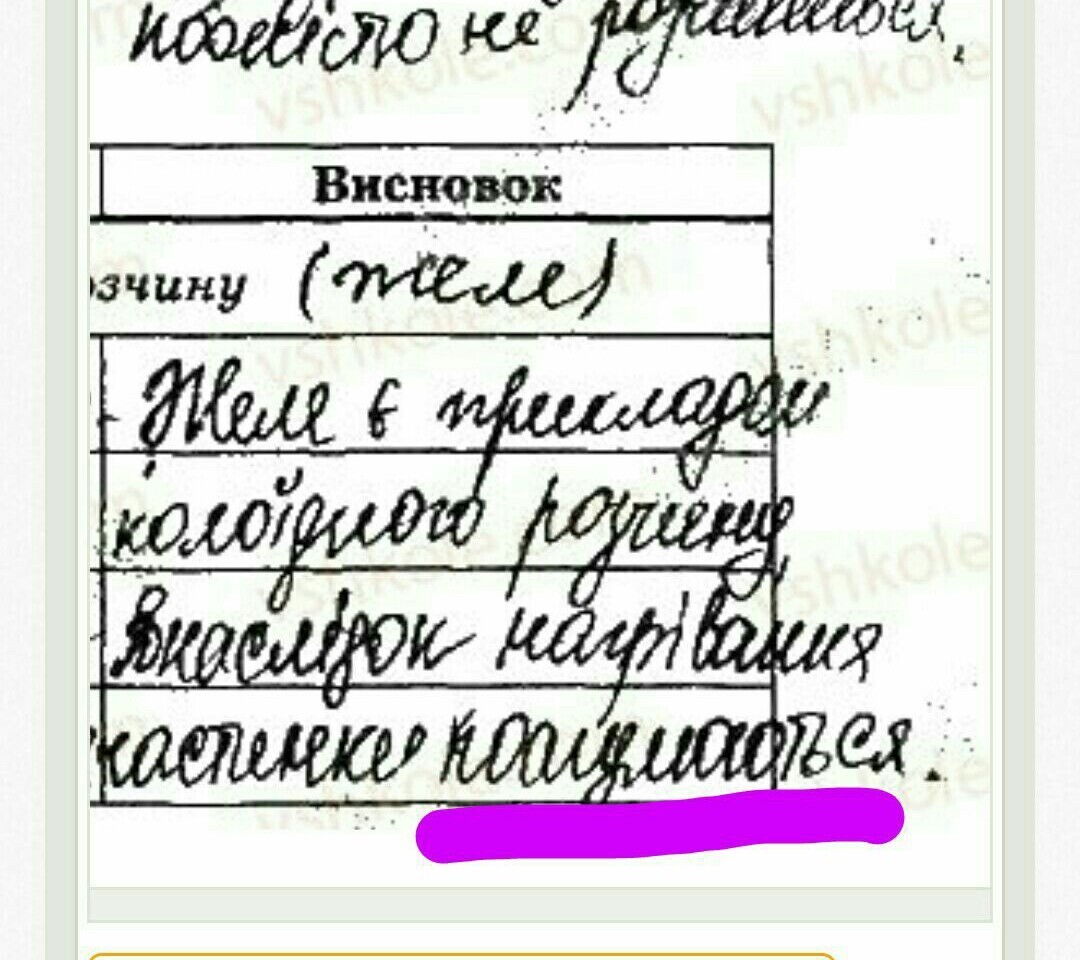 повністю не розчиниться.
Висновок
озчину (желе)
Желе є прикладом
колоїдного розчину
Внаслідок нагрівання
частинки
vshkole.com